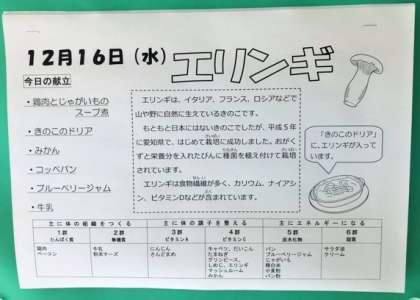 12月16日（水）
エリンギ
今日の献立
・鶏肉とじゃがいもの
スープ煮
・きのこのドリア
・みかん
・コッペパン
・ブルーベリージャム
・牛乳
エリンギは、イタリア、フランス、ロシアなどで
山や野に自然に生えているきのこです。
もともと日本にはないきのこでしたが、平成５年
に愛知県で、はじめて栽培に成功しました。おがく
ずと栄養分を入れたびんに種菌を植え付けて栽培
されています。
エリンギは食物繊維が多く、カリウム、ナイアシ
ン、ビタミンDなどが含まれています。
「きのこのドリア」
に、エリンギが入って
います。
主に体の組織をつくる 主に体の調子を整える 主にエネルギーになる
１群 ２群 ３群 ４群 ５群 ６群
たんぱく質 無機質 ビタミンA ビタミンC 炭水化物 脂質
鶏肉 牛乳 にんじん キャベツ、だいこん パン サラダ油
ベーコン 粉末チーズ さんどまめ たまねぎ ブルーベリージャム クリーム
グリンピース、 じゃがいも
しめじ、エリンギ 精白米
マッシュルーム 小麦粉
みかん パン粉